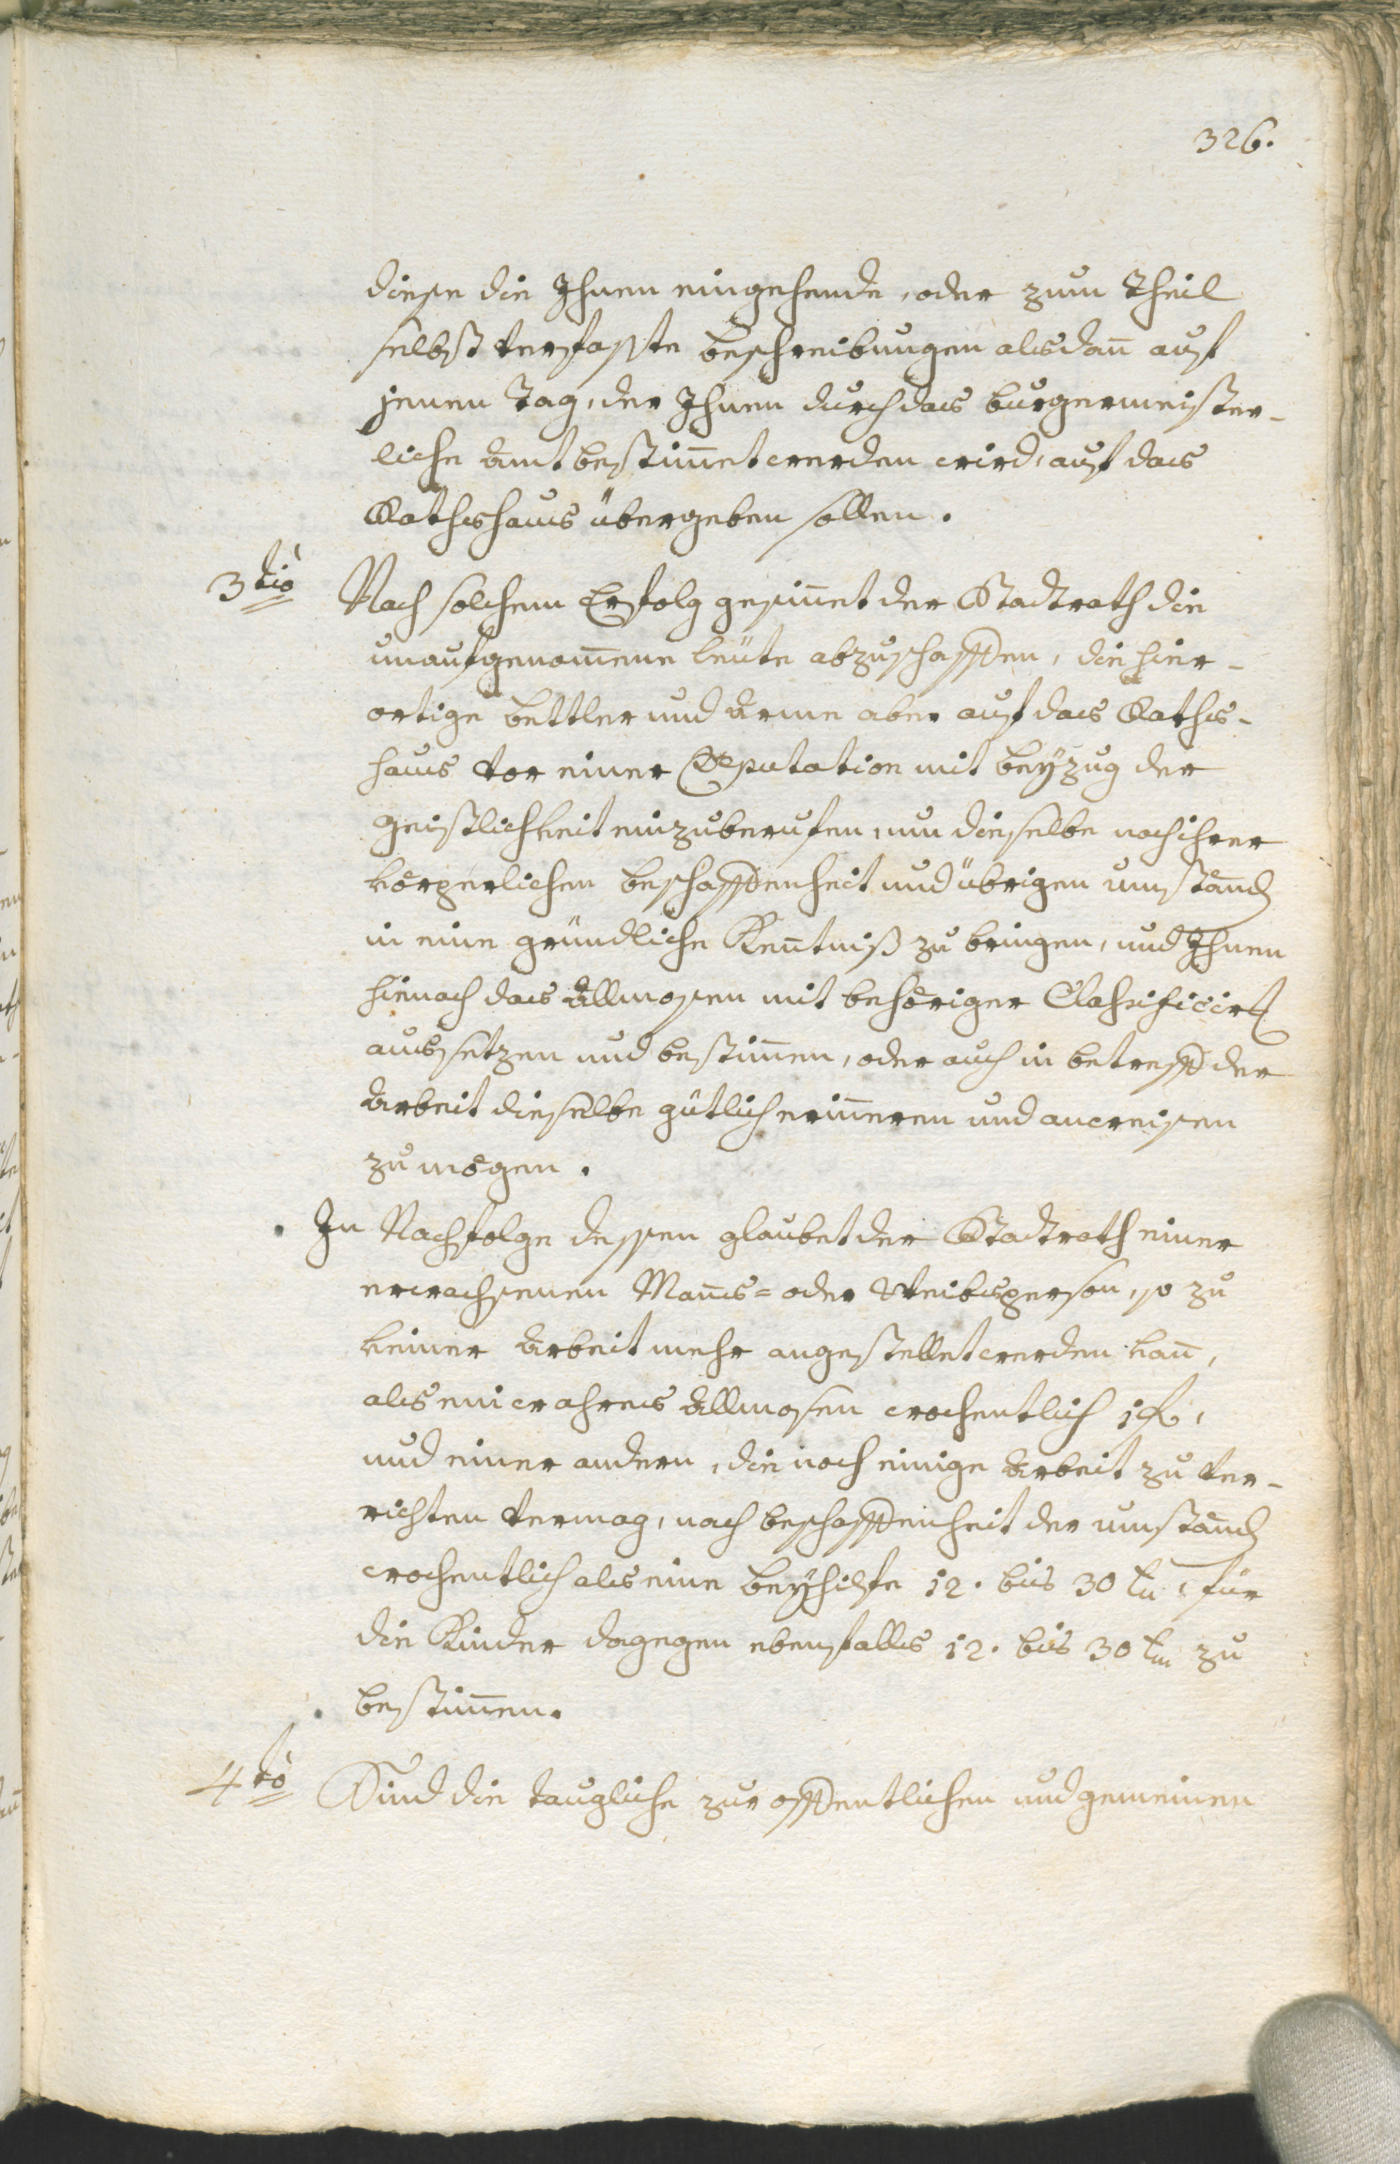 326.
diese die Ihnen eingehende, oder zum Theil
selbst verfasste Beschreibungen alsdan̄ auf
jenen Tag, der Ihnen durch das Burgermeister-
liche Amt bestim̄et werden wird, auf das
Rathshaus übergeben sollen.
3tiò Nach solchem Erfolg gesin̄et der Stadtrath die
unaufgenom̄ene Leüte abzuschaffen, die hier-
ortige Bettler und Arme aber auf das Raths-
haus vor einer Deputation mit Beÿzug der
Geistlichkeit einzuberufen, um dieselbe nach ihrer
körperlichen Beschaffenheit und übrigen Umständ
in eine gründliche Ken̄tniß zu bringen, und Ihnen
hienach das Allmosen mit behöriger Classificirg
aussetzen und bestim̄en, oder auch in betreff der
Arbeit dieselbe gütlich erin̄eren und anweisen
zu mögen.
In Nachfolge dessen glaubet der Stadtrath einer
erwachsenen Man̄s= oder Weibsperson, so zu
keiner Arbeit mehr angestellet werden kan̄,
als ein wahres Allmosen wochentlich 1 f.,
und einer andern, die noch einige Arbeit zu ver-
richten vermag, nach Beschaffenheit der Umständ
wochentlich als eine Beÿhilfe 12. bis 30 kr, für
die Kinder dagegen ebenfalls 12. bis 30 kr zu
bestim̄en.
4tò Sind die taugliche zur offentlichen und gemeinen